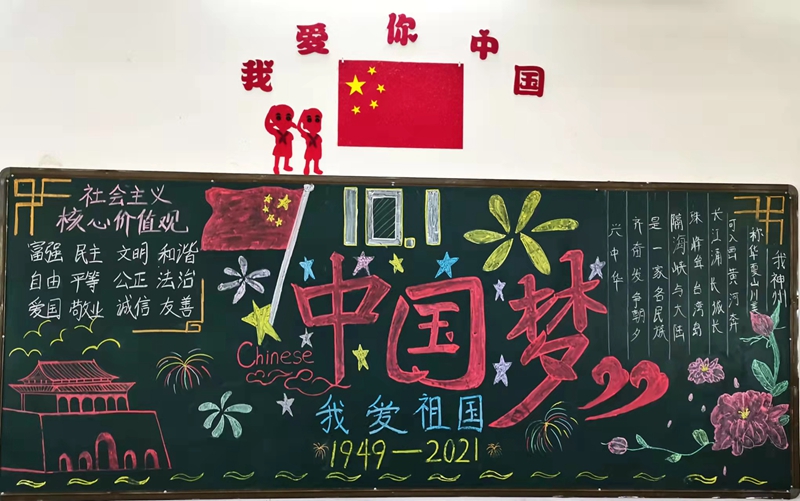 我爱你中国
社会主义
核心价值观
富强 民主 文明 和谐
自由 平等 公正 法治
爱国 敬业 诚信 友善
10.1
中国梦
Chinese
我爱祖国
1949—2021
我神州
称华夏山川美
可入画黄河奔
长江涌长城长
珠峰耸台湾岛
隔海峡与大陆
是一家各民族
齐奋发争朝夕
兴中华